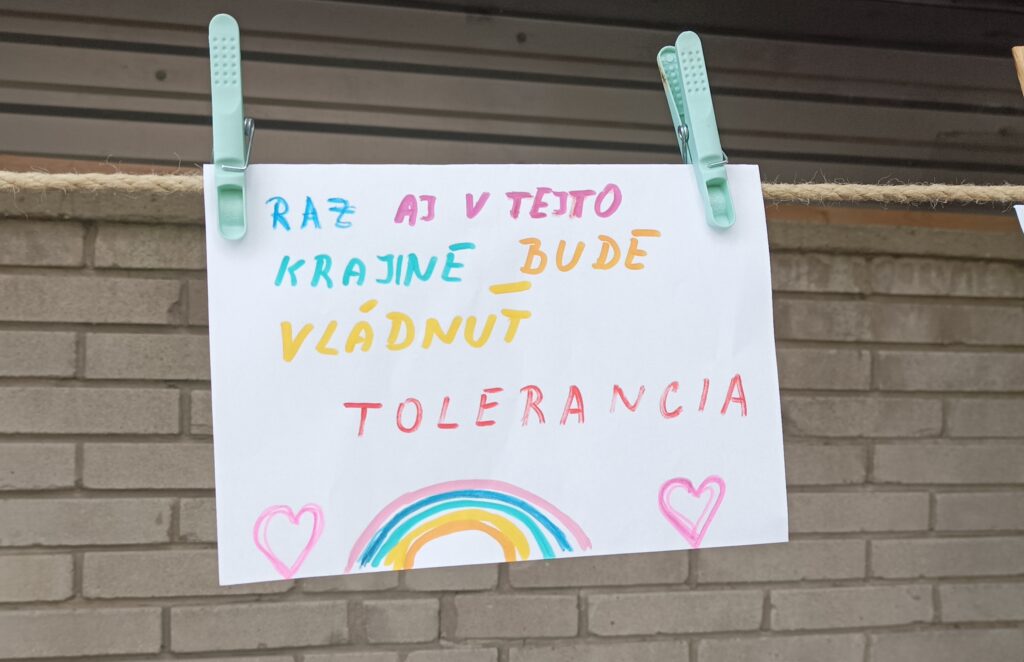 RAZ AJ V TEJTO
KRAJINE BUDE
VLÁDNUŤ
TOLERANCIA